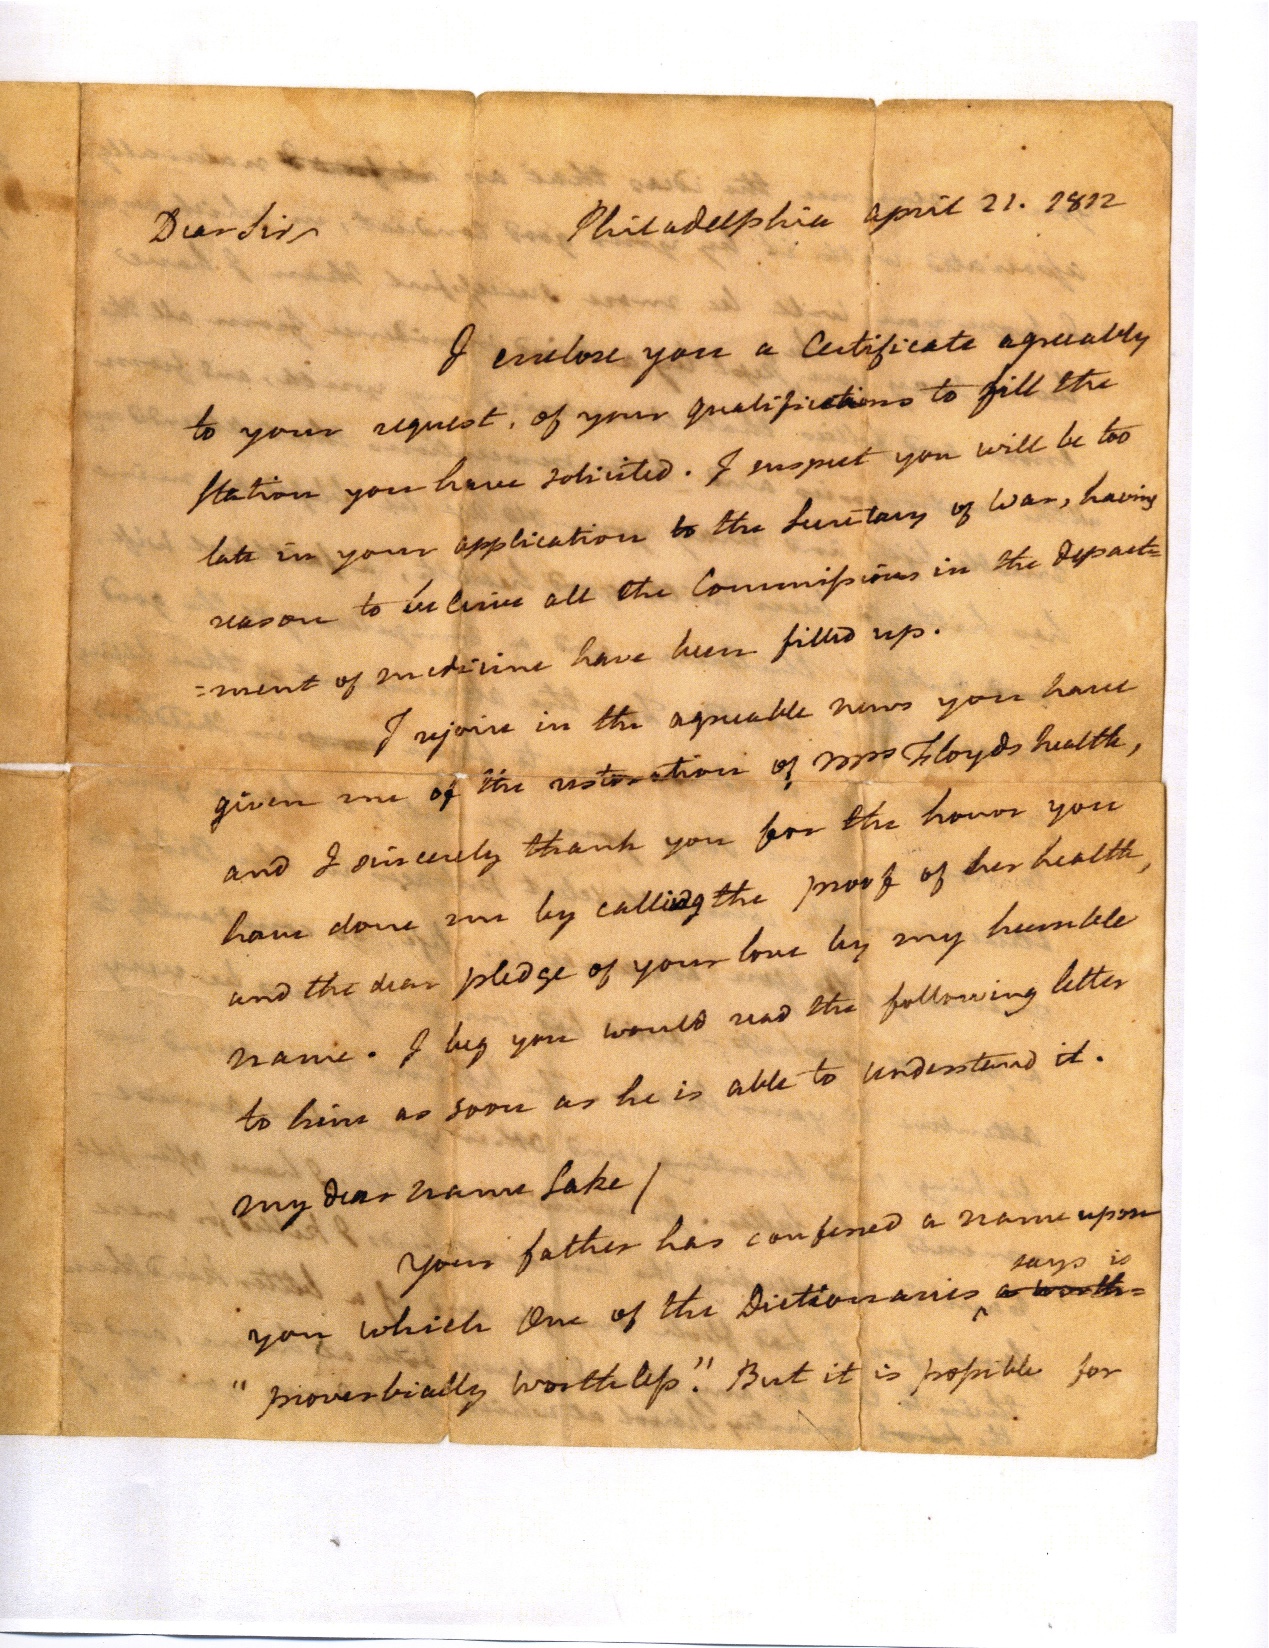 Dear Sir,
Philadelphia April 21. 1812
I enclose you a Certificate agreeably
to your request, of your qualifications to fill the
station you have solicited. I suspect you will be too
late in your application to the Secretary of War, having
reason to believe all the Commissions in the depart=
=ment of medicine have been filled up.
I rejoice in the agreeable news you have
given me of the restoration of Mrs Floyds health,
and I sincerely thank you for the honor you
have done me by calling the proof of her health,
and the dear pledge of your love by my humble
name. I beg you would read the following letter
to him as soon as he is able to understand it.
My dear name Sake /
Your father has confered a name upon
says is
you which One of the Dictionaries ^ a worth=
"proverbially worthless." But it is possible for